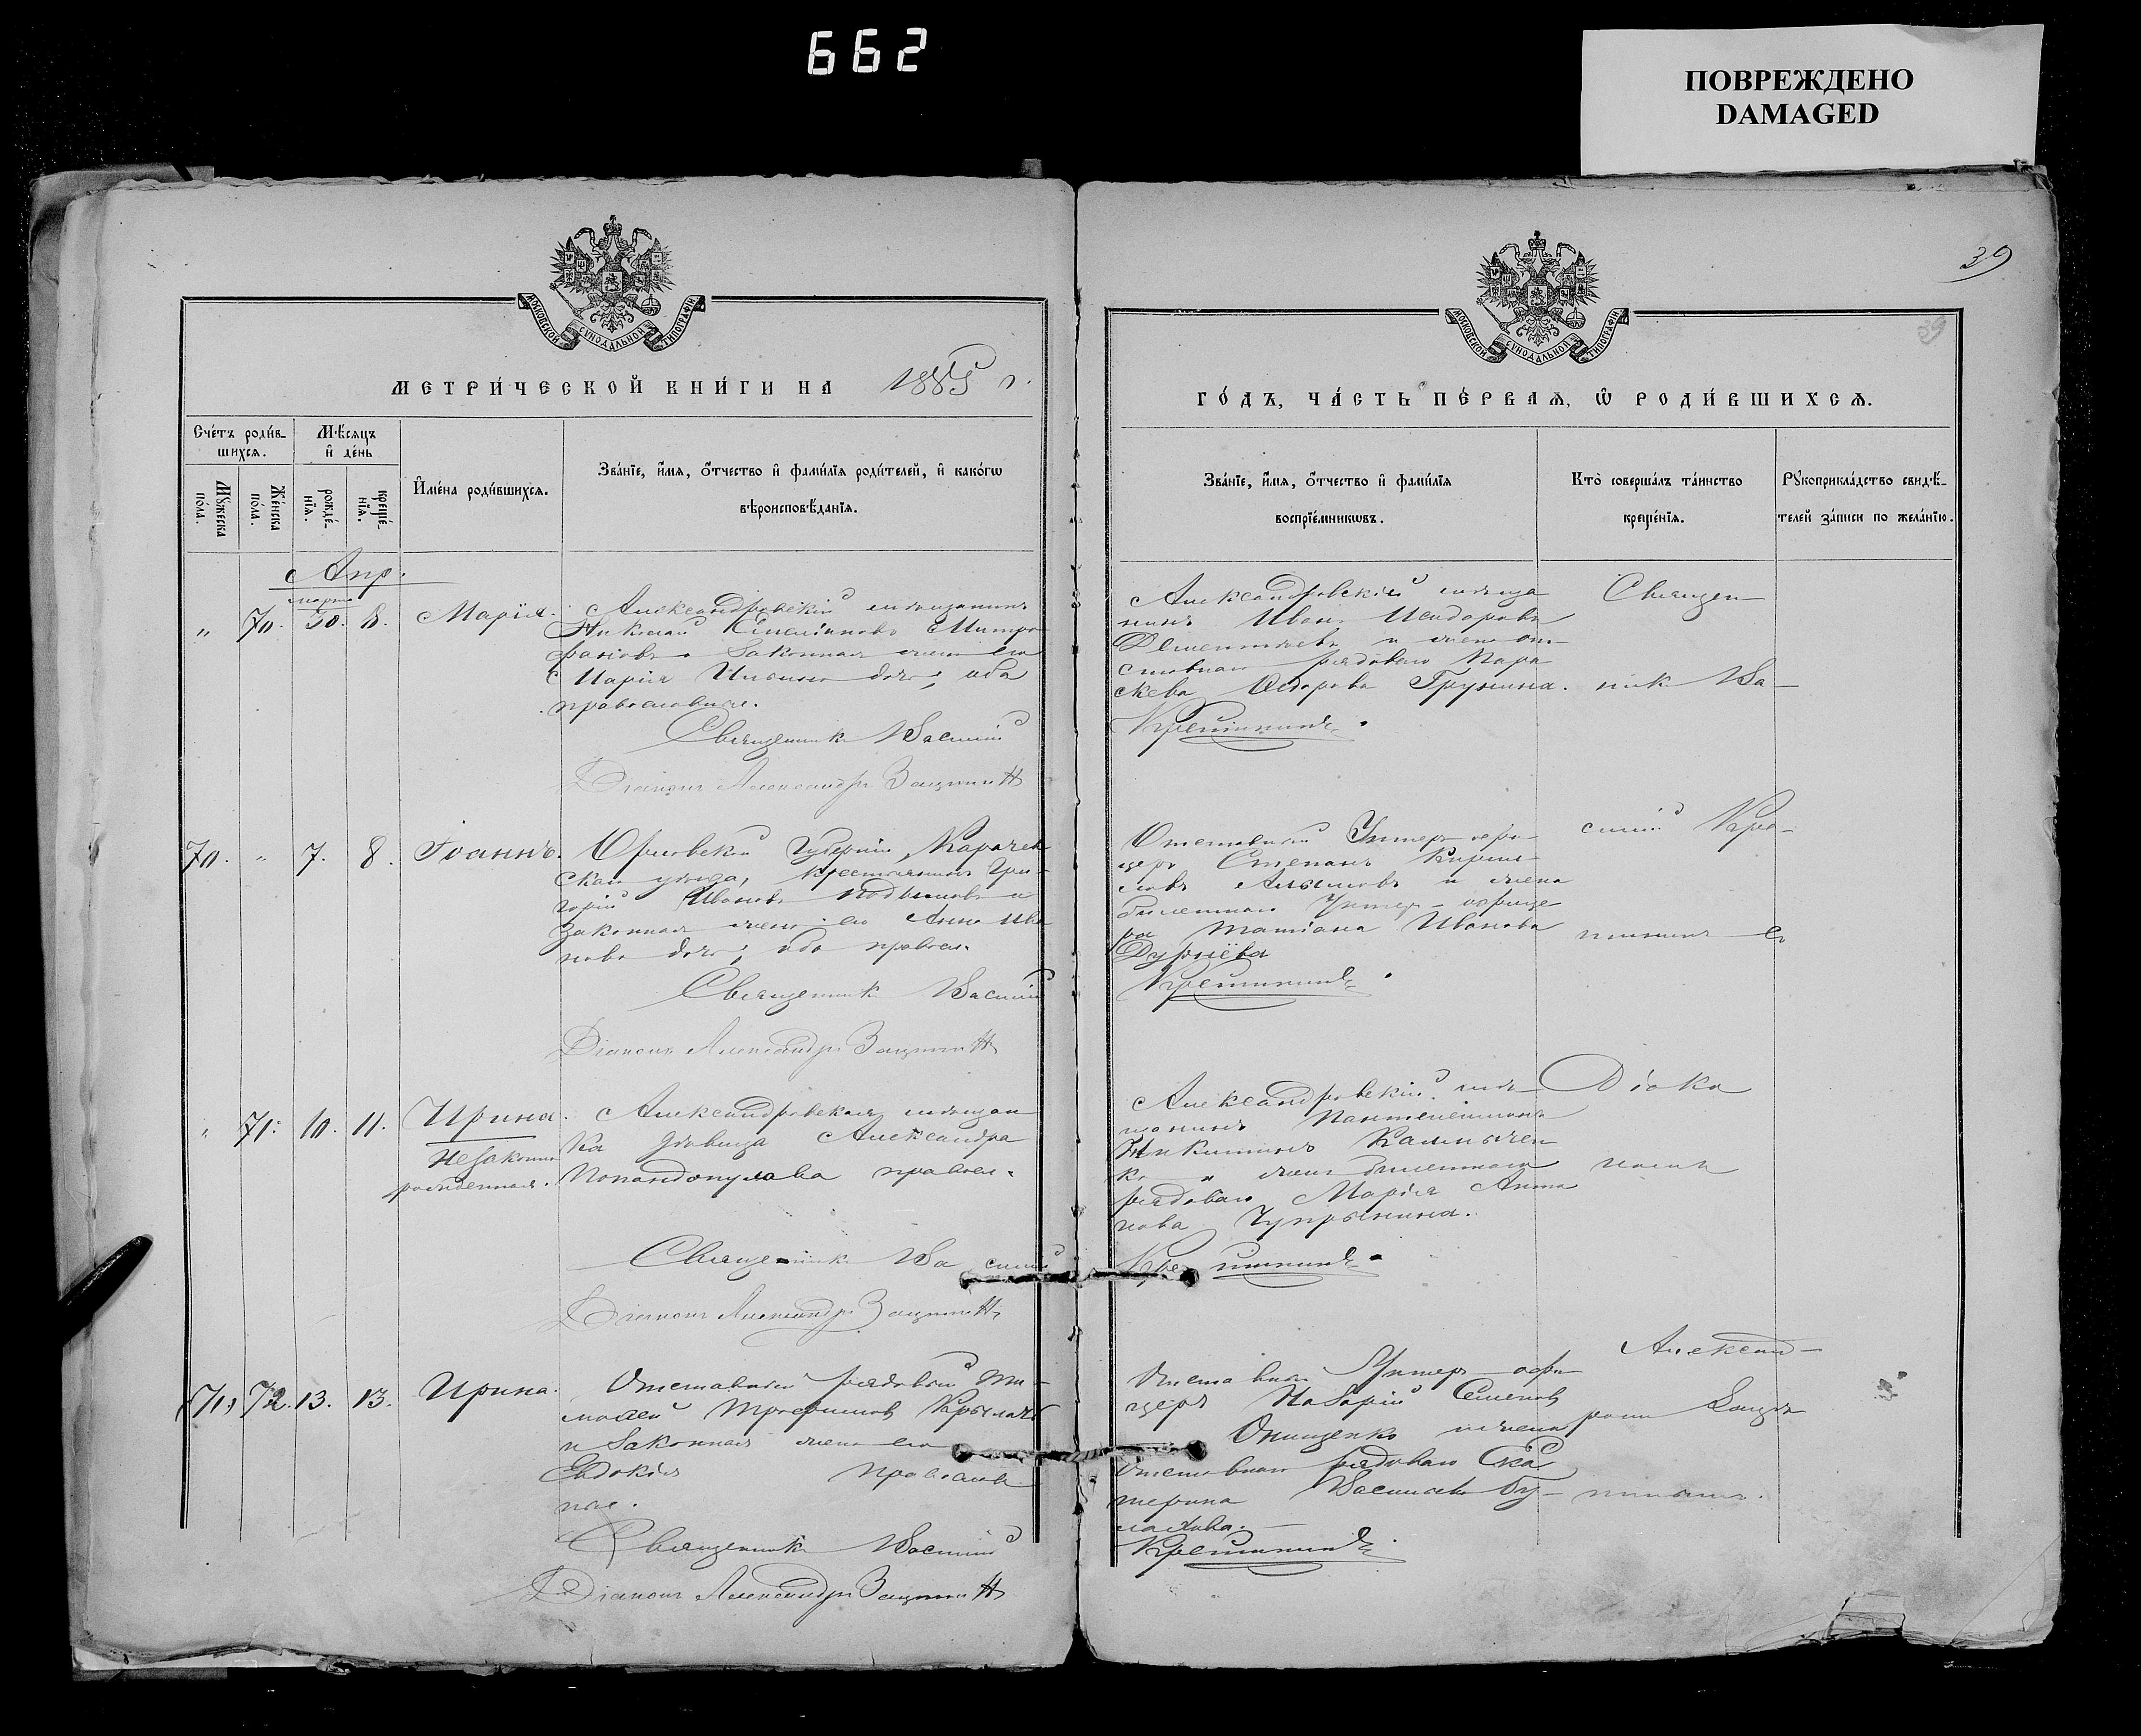 662
ПОВРЕЖДЕНО
DAMAGED
39
39
МОСКОВСКОЙ СѴНОДАЛЬНОЙ ТИПОГРАФІИ
МОСКОВСКОЙ СѴНОДАЛЬНОЙ ТИПОГРАФІИ
МЕТРИ́ЧЕСКОЙ КНИ́ГИ НА 1885 г.
ГО́ДЪ, ЧА́СТЬ ПЕ́РВАЯ, Ѡ РОДИ́ВШИХСЯ.
Сче́тъ роди́в-
шихся.
Мѣ́сяцъ
и҆ де́нь
Мꙋ́жеска
по́ла.
Же́нска
по́ла.
рожде́-
нїѧ.
креще́-
нїѧ.
И҆мена̀ роди́вшихся.
Зва́нїе, и҆́мѧ, ѻ҆́тчество и҆ фами́лїѧ роди́телей, и҆ како́гѡ
вѣроисповѣ́данїѧ.
Зва́нїе, и҆́мѧ, ѻ҆́тчество и҆ фами́лїѧ
воспрїе́мникѡвъ.
Кто̀ соверша́лъ та́инство
креще́нїѧ.
Рꙋкоприкла́дство свидѣ́-
телей за́писи по жела́нїю.
Апр.
марта
" 70. 30. 8. Марія.
Александровскій мѣщанинъ
Николай Емельяновъ Митро
фановъ и законная жена его
Марія Ильина дочь; оба
православные.
Священникъ Василій
Діаконъ Александръ Защитинъ
Александровскій мѣща
нинъ Иванъ Исидоровъ
Дементьевъ и жена от
ставнаго рядоваго Пара
скева Ѳедорова Грунина.
Крестининъ.
Священ-
никъ Ва-
70. " 7. 8. Іоаннъ.
Орловской Губерніи, Карачев
скаго уѣзда, крестьянинъ Гри-
горій Ивановъ и
законная жена его Анна Ива
нова дочь; оба правосл.
Священникъ Василій
Діаконъ Александръ Защитинъ
Отставной Унтеръ-офи
церъ Степанъ Кирил-
ловъ и жена
билетнаго Унтеръ-офице
ра Татіана Иванова
Дурнёва
Крестининъ.
силій Кре-
стининъ съ
" 71. 10. 11. Ирина.
Незаконно
рожденная.
Александровская мѣщан
ка дѣвица Александра
Попандопулова правосл.
Священникъ Василій
Діаконъ Александръ Защитинъ
Александровскій мѣ-
щанинъ Пантелеймонъ
Никитинъ Калмычен
ко и жена билетнаго
рядоваго Марія Анто
нова Чупрынина.
Крестининъ.
Діако
номъ
71, 72. 13. 13. Ирина.
Отставной рядовой Ти-
моѳей Трофимовъ
и законная жена его
Евдокія православ
ные.
Священникъ Василій
Діаконъ Александръ Защитинъ
Отставной Унтеръ-офи
церъ Назарій Семеновъ
Онищенко и жена
отставнаго рядоваго Ека
терина Васильева Бу-
лахова.
Крестининъ.
Александ-
ромъ Защи-
тинымъ.